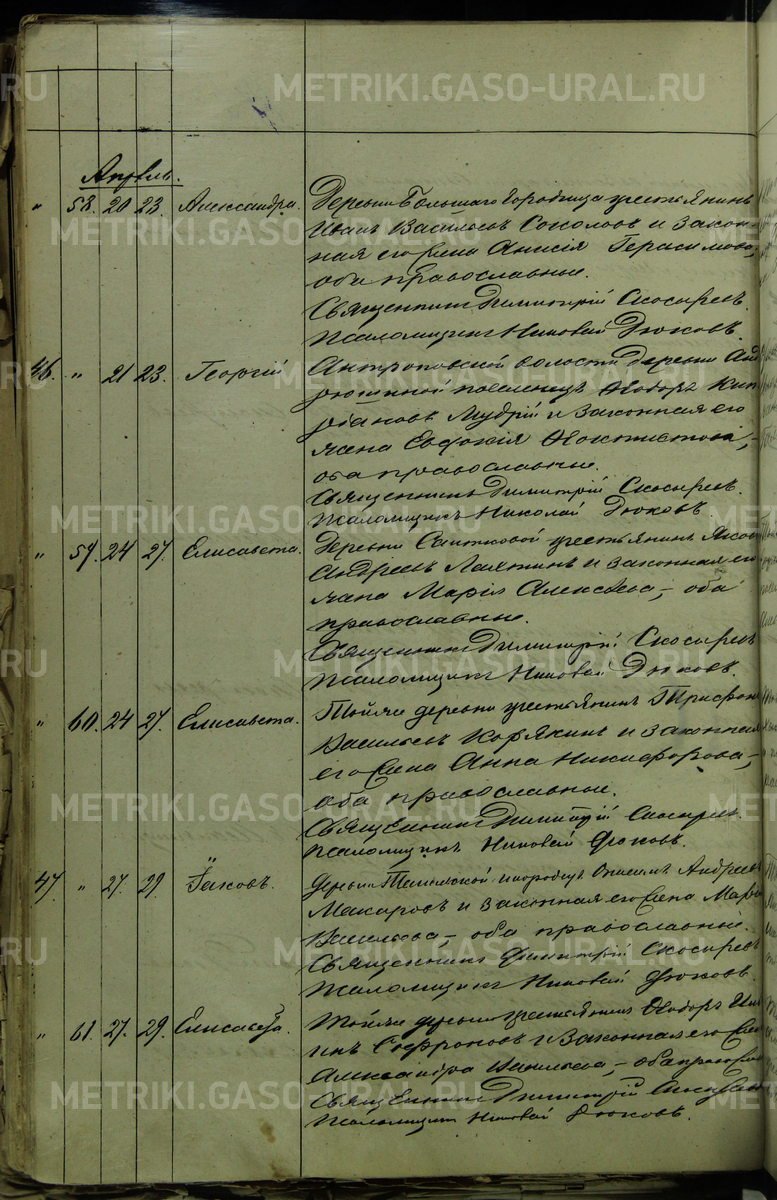 METRIKI.GASO-URAL.RU
Апрѣль.
" 58. 20 23. Александра. Деревни Большаго Городища крестьянинъ
Иванъ Васильевъ Соколовъ и закон-
ная его жена Анисія Герасимова,
оба православные.
Священникъ Димитрій Скосыревъ.
Псаломщикъ Николай Дюковъ.
46. " 21 23. Георгій Антроповской волости деревни
поселенецъ Ѳеодоръ Кип-
ріановъ Мудрій и законная его
жена Евдокія Ѳеоктистова,
оба православные.
Священникъ Димитрій Скосыревъ.
Псаломщикъ Николай Дюковъ.
" 59. 24 27. Елисавета. Деревни крестьянинъ
Андреевъ и законная его
жена Марія Алексѣева, оба
православные.
Священникъ Димитрій Скосыревъ
Псаломщикъ Николай Дюковъ.
" 60. 24 27. Елисавета. Той же деревни крестьянинъ Трифонъ
Васильевъ Корякинъ и законная
его жена Анна Никифорова,
оба православные.
Священникъ Димитрій Скосырев.
Псаломщикъ Николай Дюковъ.
47. " 27. 29 Іаковъ. Деревни инородецъ Андреевъ
Макаровъ и законная его жена
Васильева, оба православные.
Священникъ Димитрій Скосыревъ
Псаломщикъ Николай Дюковъ.
" 61. 27. 29. Елисавета. Той же деревни крестьянинъ Ѳеодоръ
Софроновъ и законная его жена
Александра Васильева, оба
Священникъ Димитрій
Псаломщикъ Николай Дюковъ.